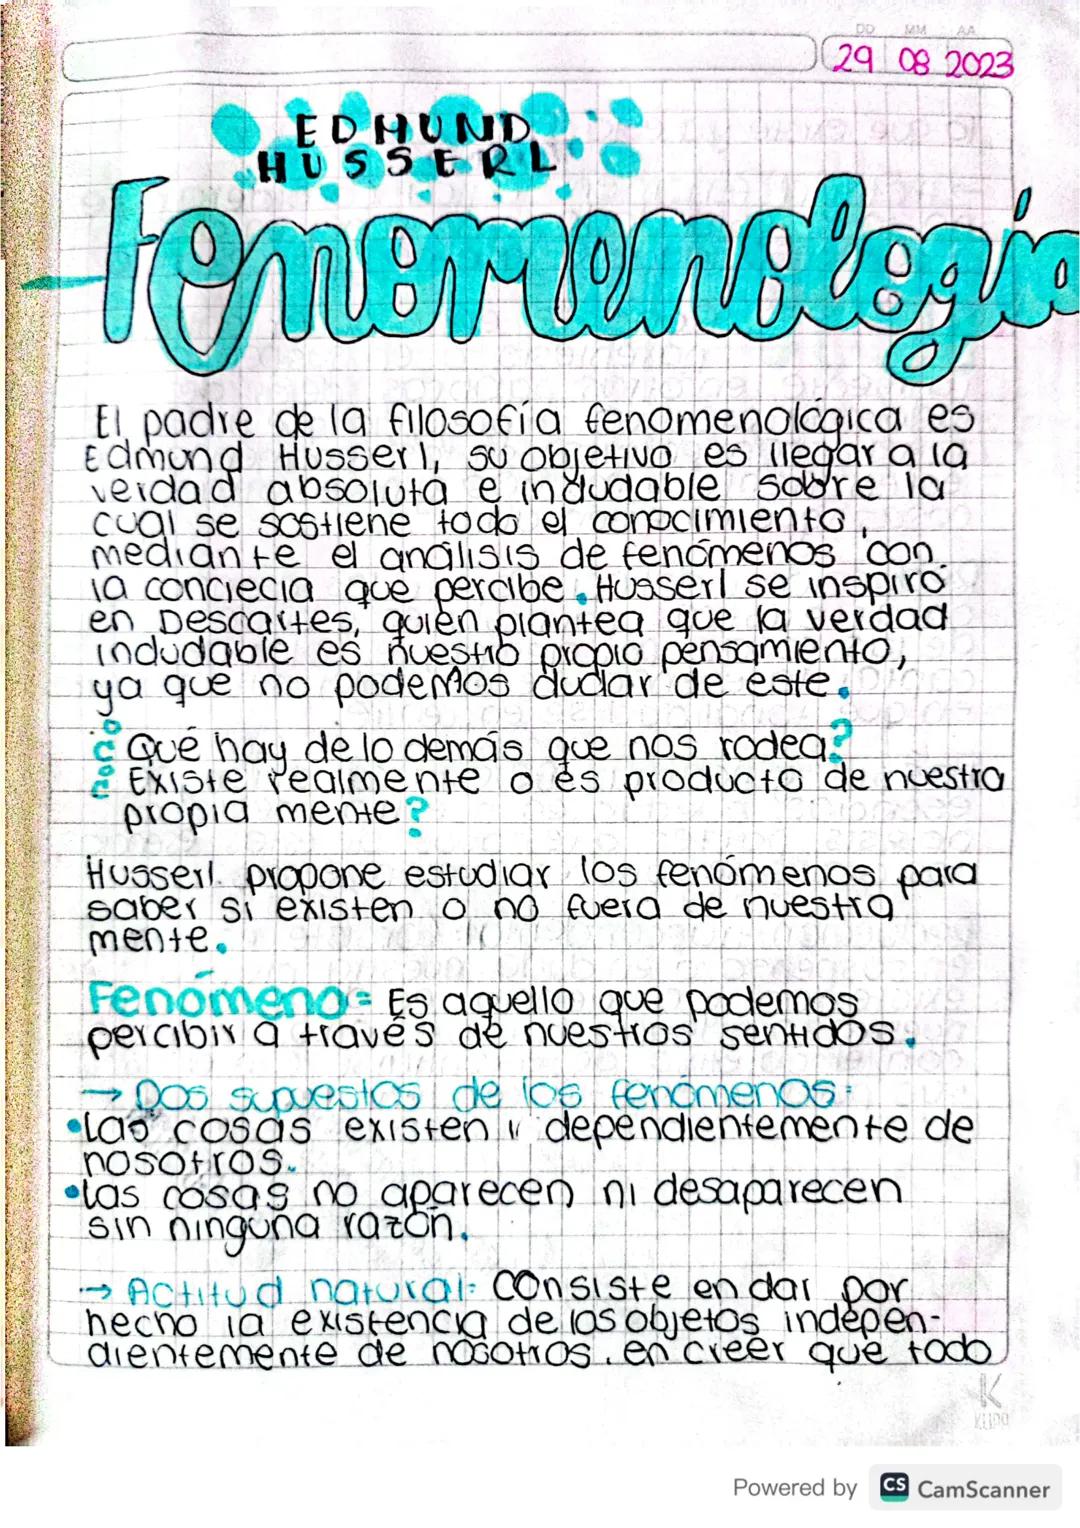 DD MM AA
29 08 2023
EDMUND
HUSSERL
Fenomenología
El padre de la filosofía fenomenológica es
Edmund Husserl, su objetivo es llegar a la
verdad absoluta e indudable sobre la
cual se sostiene todo el conocimiento,
mediante el análisis de fenómenos con
la conciecia que percibe. Husserl se inspiro
en Descartes, quien plantea que la verdad
indudable es nuestro propio pensamiento,
ya que no podemos dudar de este.
¿Qué hay de lo demás que nos rodea?
¿Existe realmente o es producto de nuestra
propia mente?
Husserl propone estudiar los fenómenos para
saber si existen o no fuera de nuestra
mente.
Fenómeno= Es aquello que podemos
percibir a través de nuestros sentidos.
→ Dos supuestos de los fenómenos:
•Las cosas existen dependientemente de
nosotros.
•Las cosas no aparecen ni desaparecen
sin ninguna razón.
→ Actitud natural: Consiste en dar por
hecho la existencia de los objetos indepen-
dientemente de nosotros, en creer que todo
K
Powered by CS CamScanner